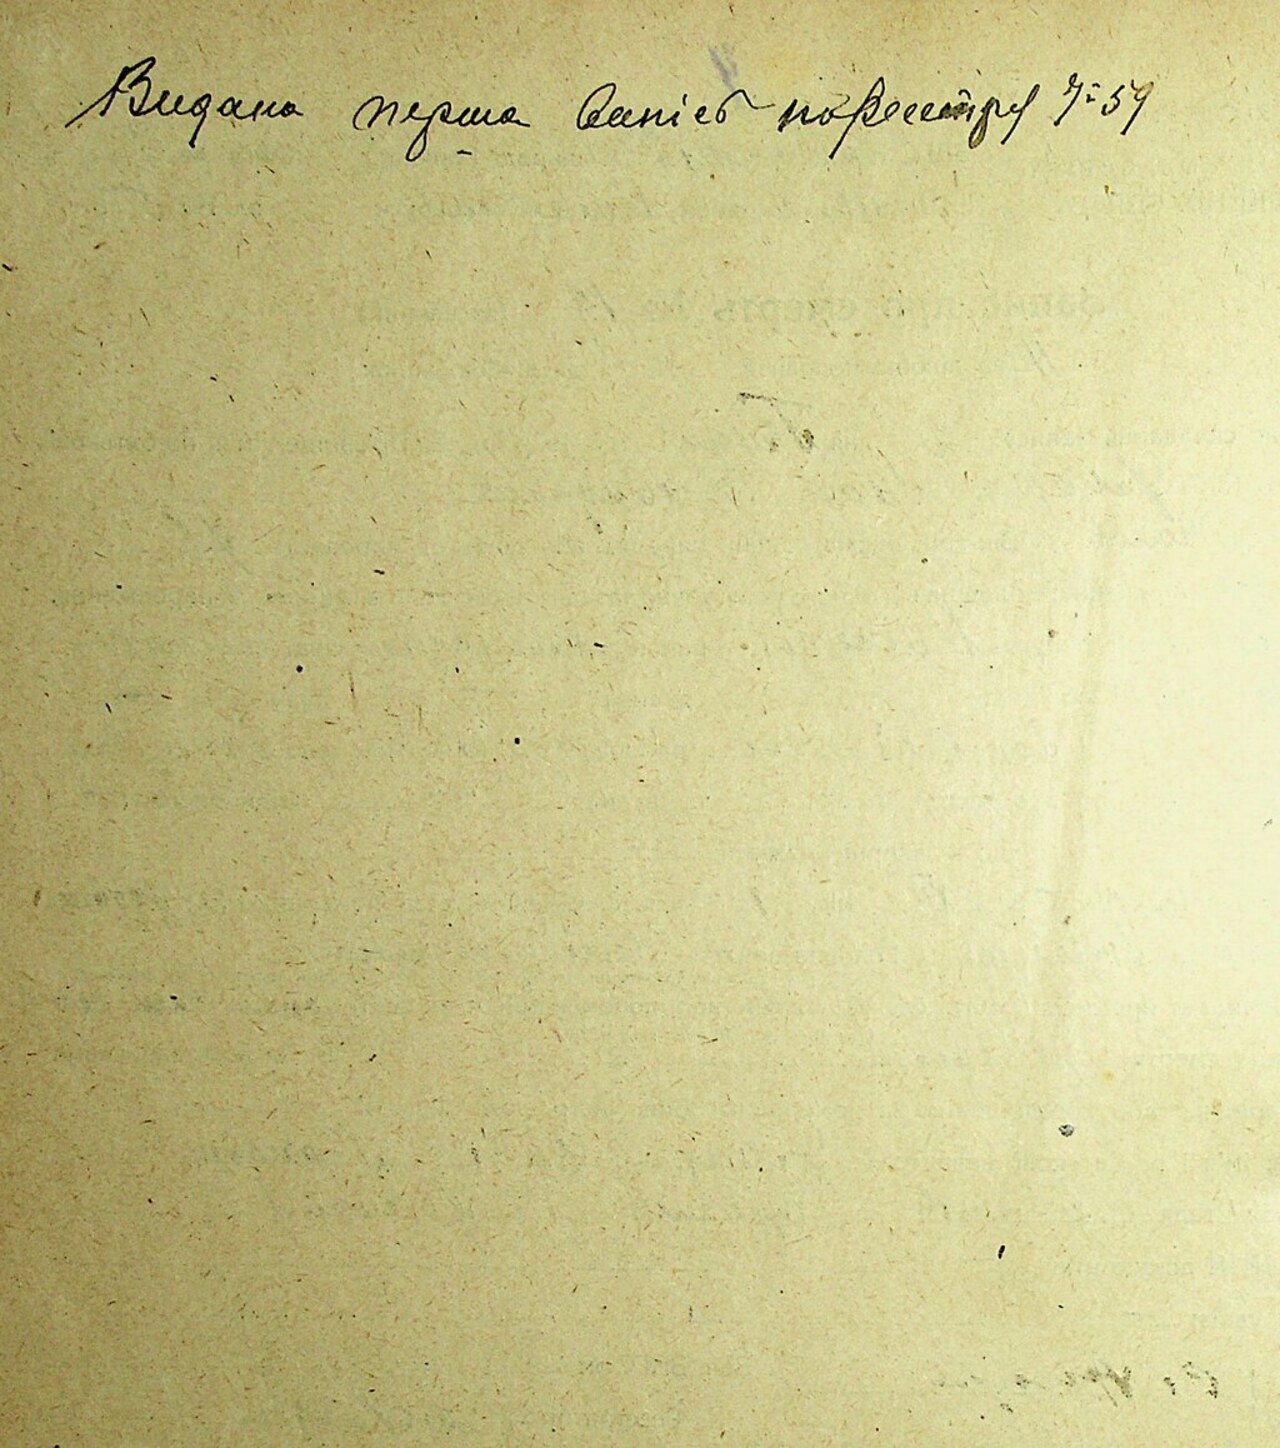 Видана перша випісь по реєстру № 59